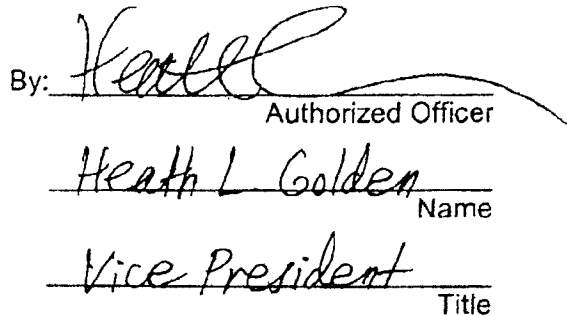 By: Heath L
Authorized Officer
Heath L Golden
Name
Vice President
Title